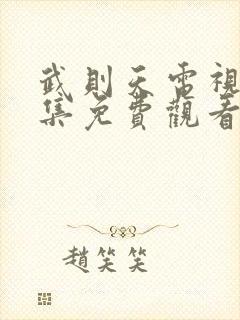 武則天電視
集免費觀看
趙笑笑